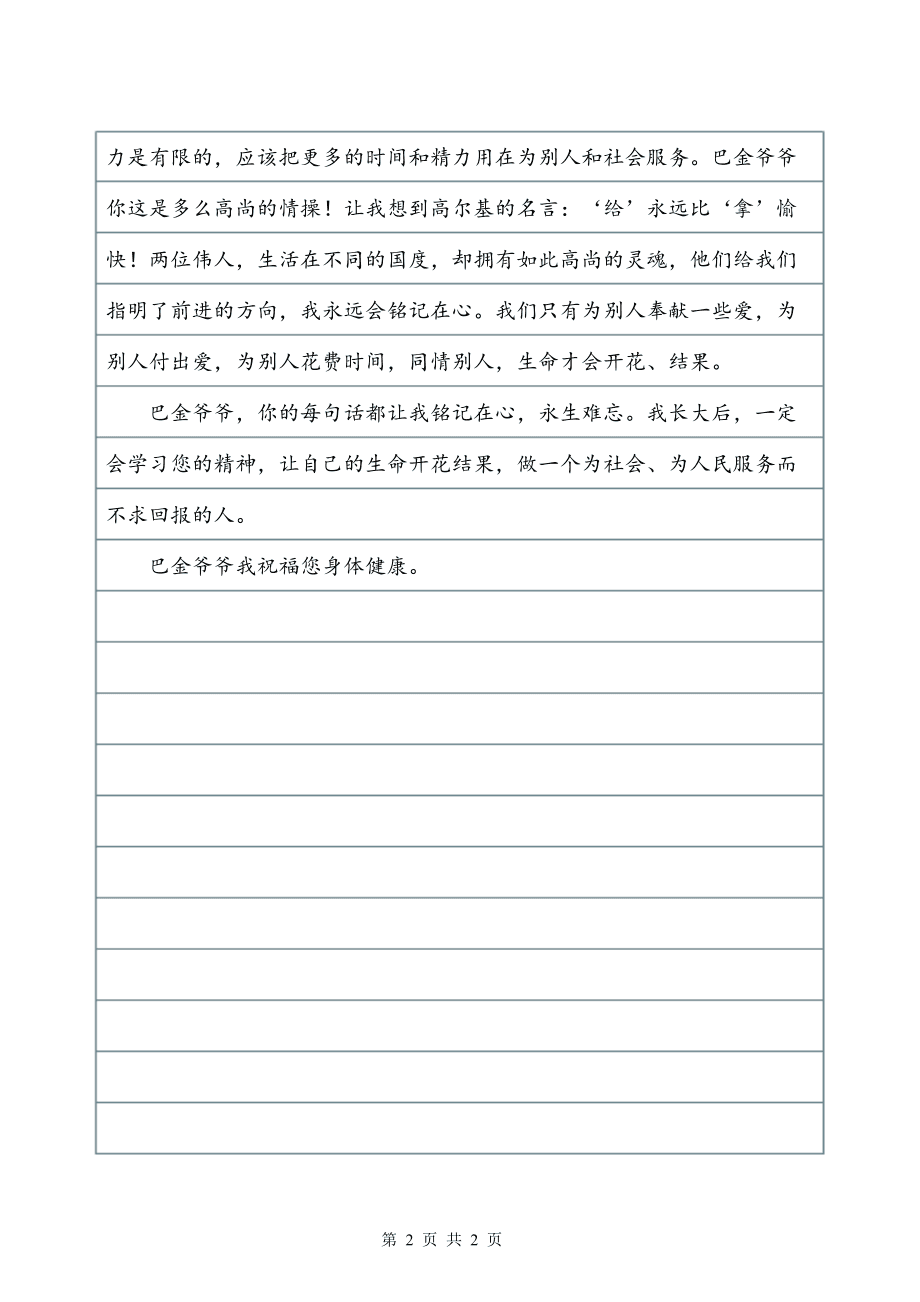 力是有限的，应该把更多的时间和精力用在为别人和社会服务。巴金爷爷
你这是多么高尚的情操！让我想到高尔基的名言：‘给’永远比‘拿’愉
快！两位伟人，生活在不同的国度，却拥有如此高尚的灵魂，他们给我们
指明了前进的方向，我永远会铭记在心。我们只有为别人奉献一些爱，为
别人付出爱，为别人花费时间，同情别人，生命才会开花、结果。
巴金爷爷，你的每句话都让我铭记在心，永生难忘。我长大后，一定
会学习您的精神，让自己的生命开花结果，做一个为社会、为人民服务而
不求回报的人。
巴金爷爷我祝福您身体健康。
第 2 页 共 2 页